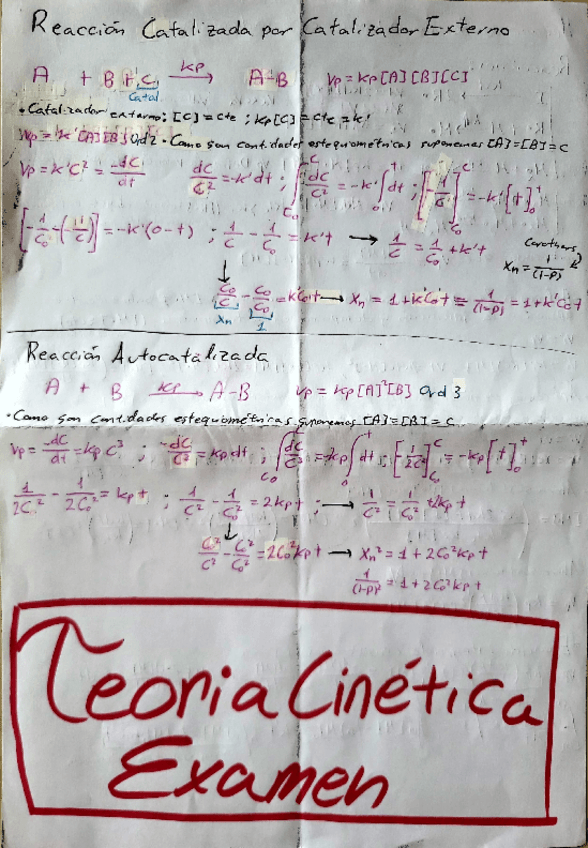 Reacción Catalizada por Catalizador Externo
A + B + C —kp→ A-B Vp = kp[A][B][C]
Catal.
• Catalizador externo; [C] = cte ; kp[C] = cte = k'
Vp = k'[A][B] Ord 2 • Como son cantidades estequiométricas suponemos [A]=[B]=C
Vp = k'C² = -dC/dt dC/C² = -k'dt ; ∫_{C₀}^{C} dC/C² = -k'∫_0^t dt ; [-1/C]_{C₀}^{C} = -k'[t]_0^t
[-1/C₀ - (-1/C)] = -k'(0-t) ; 1/C - 1/C₀ = k't → 1/C = 1/C₀ + k't
Carothers
Xn = 1/(1-p)
↓
C₀/C - C₀/C₀ = k'C₀t → Xn = 1 + k'C₀t = 1/(1-p) = 1 + k'C₀t
Xn 1
Reacción Autocatalizada
A + B —kp→ A-B Vp = kp[A]²[B] Ord 3
• Como son cantidades estequiométricas suponemos [A]=[B]=C
Vp = -dC/dt = kp C³ ; -dC/C³ = kp dt ; ∫_{C₀}^{C} dC/C³ = -kp∫_0^t dt ; [-1/2C²]_{C₀}^{C} = -kp[t]_0^t
1/2C² - 1/2C₀² = kp t ; 1/C² - 1/C₀² = 2kp t ; → 1/C² = 1/C₀² + 2kp t
↓
C₀²/C² - C₀²/C₀² = 2C₀²kp t → Xn² = 1 + 2C₀²kp t
1/(1-p)² = 1 + 2C₀²kp t
Teoria Cinética
Examen